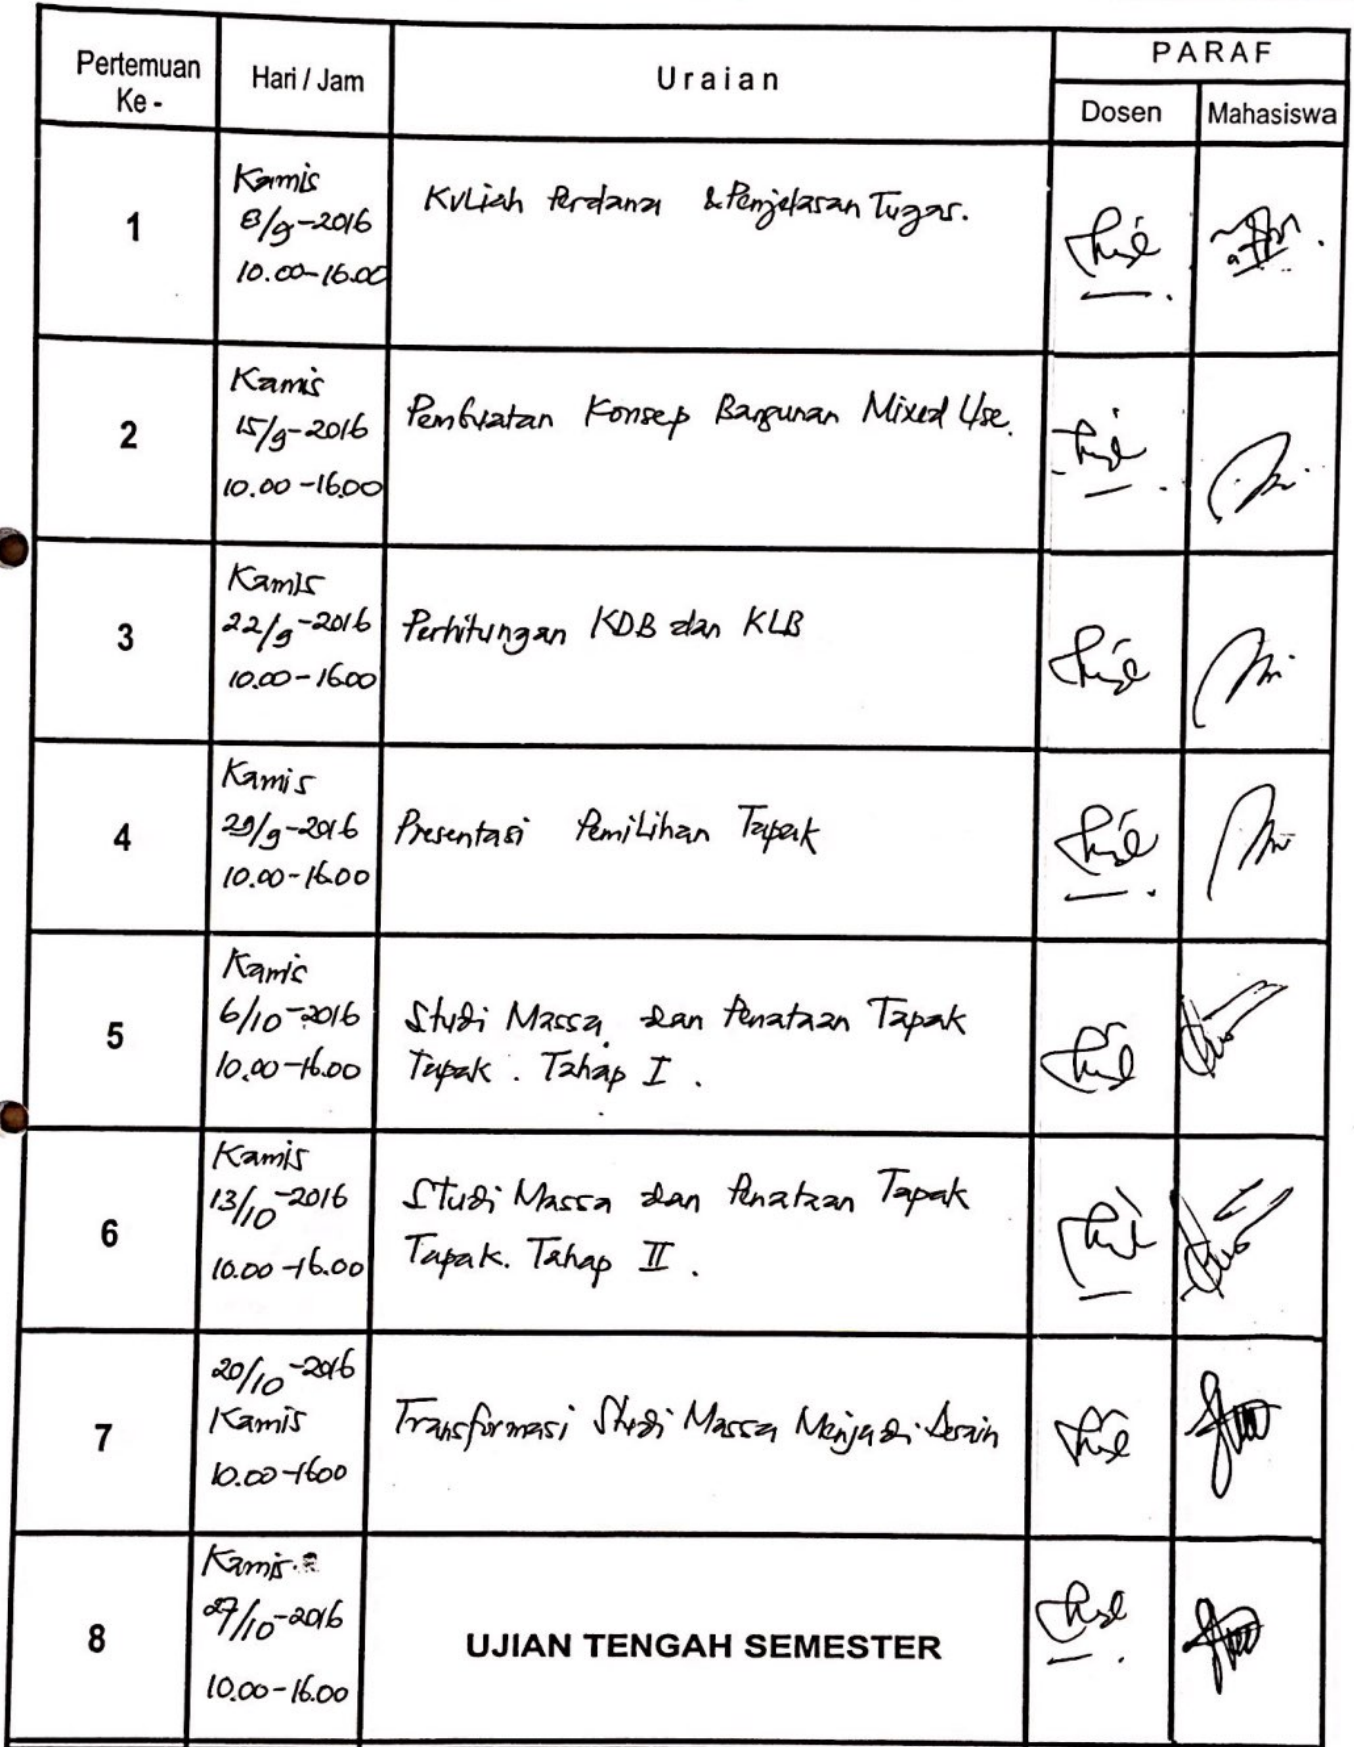 Pertemuan Ke -
Hari / Jam
Uraian
PARAF
Dosen
Mahasiswa
1
Kamis
8/9-2016
10.00-16.00
Kuliah Perdana & Penjelasan Tugas.
2
Kamis
15/9-2016
10.00-16.00
Pembuatan Konsep Bangunan Mixed Use.
3
Kamis
22/9-2016
10.00-16.00
Perhitungan KDB dan KLB
4
Kamis
29/9-2016
10.00-16.00
Presentasi Pemilihan Tapak
5
Kamis
6/10-2016
10.00-16.00
Studi Massa dan Penataan Tapak
Tapak. Tahap I.
6
Kamis
13/10-2016
10.00-16.00
Studi Massa dan Penataan Tapak
Tapak. Tahap II.
7
20/10-2016
Kamis
10.00-1600
Transformasi Studi Massa Menjadi Desain
8
Kamis.
27/10-2016
10.00-16.00
UJIAN TENGAH SEMESTER